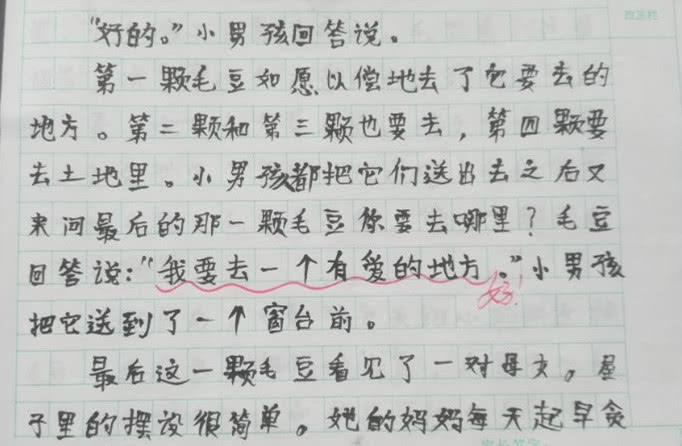 “好的。”小男孩回答说。
第一颗毛豆如愿以偿地去了它要去的
地方。第二颗和第三颗也要去，第四颗要
去土地里。小男孩都把它们送出去之后又
来问最后的那一颗毛豆你要去哪里？毛豆
回答说：“我要去一个有爱的地方。”小男孩
好！
把它送到了一个窗台前。
最后这一颗毛豆看见了一对母女。屋
子里的摆设很简单。她的妈妈每天起早贪